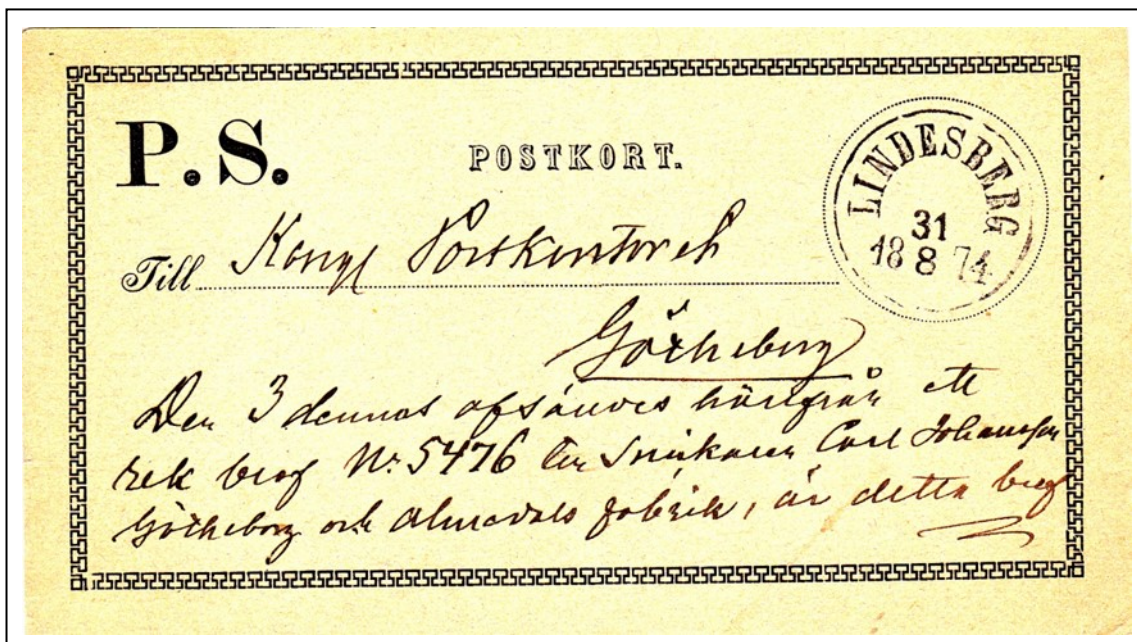 P. S.
POSTKORT.
LINDESBERG
31
18 8 74
Till Kongl Postkontoret
Götheborg
Den 3 dennes afsändes härifrån ett
rek bref Nr. 5476 till Snickaren Carl Johansson
Götheborg och Almedals fabrik, är detta bref